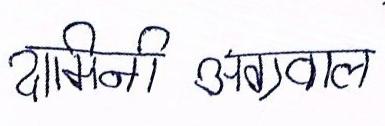 दामिनी अग्रवाल